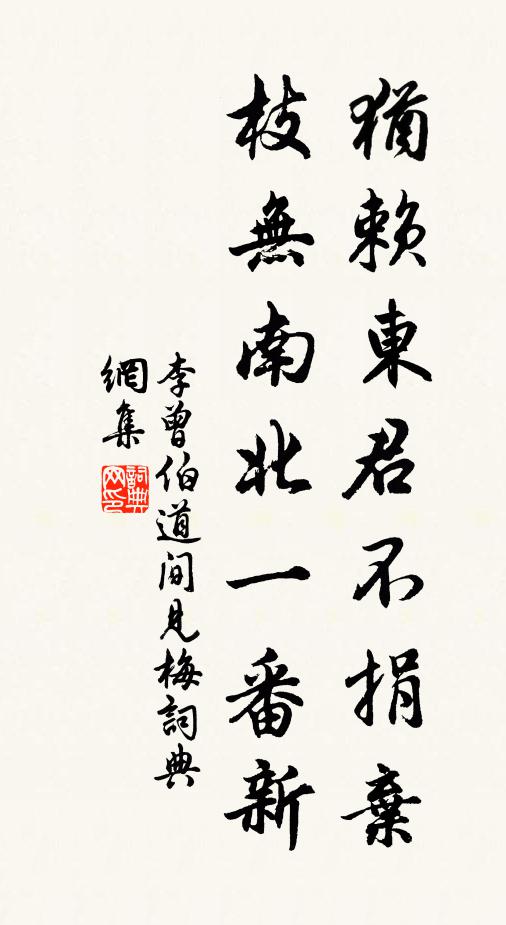 猶賴東君不捐棄
枝無南北一番新
李曾伯道間見梅詞典
網集
詞典
网印